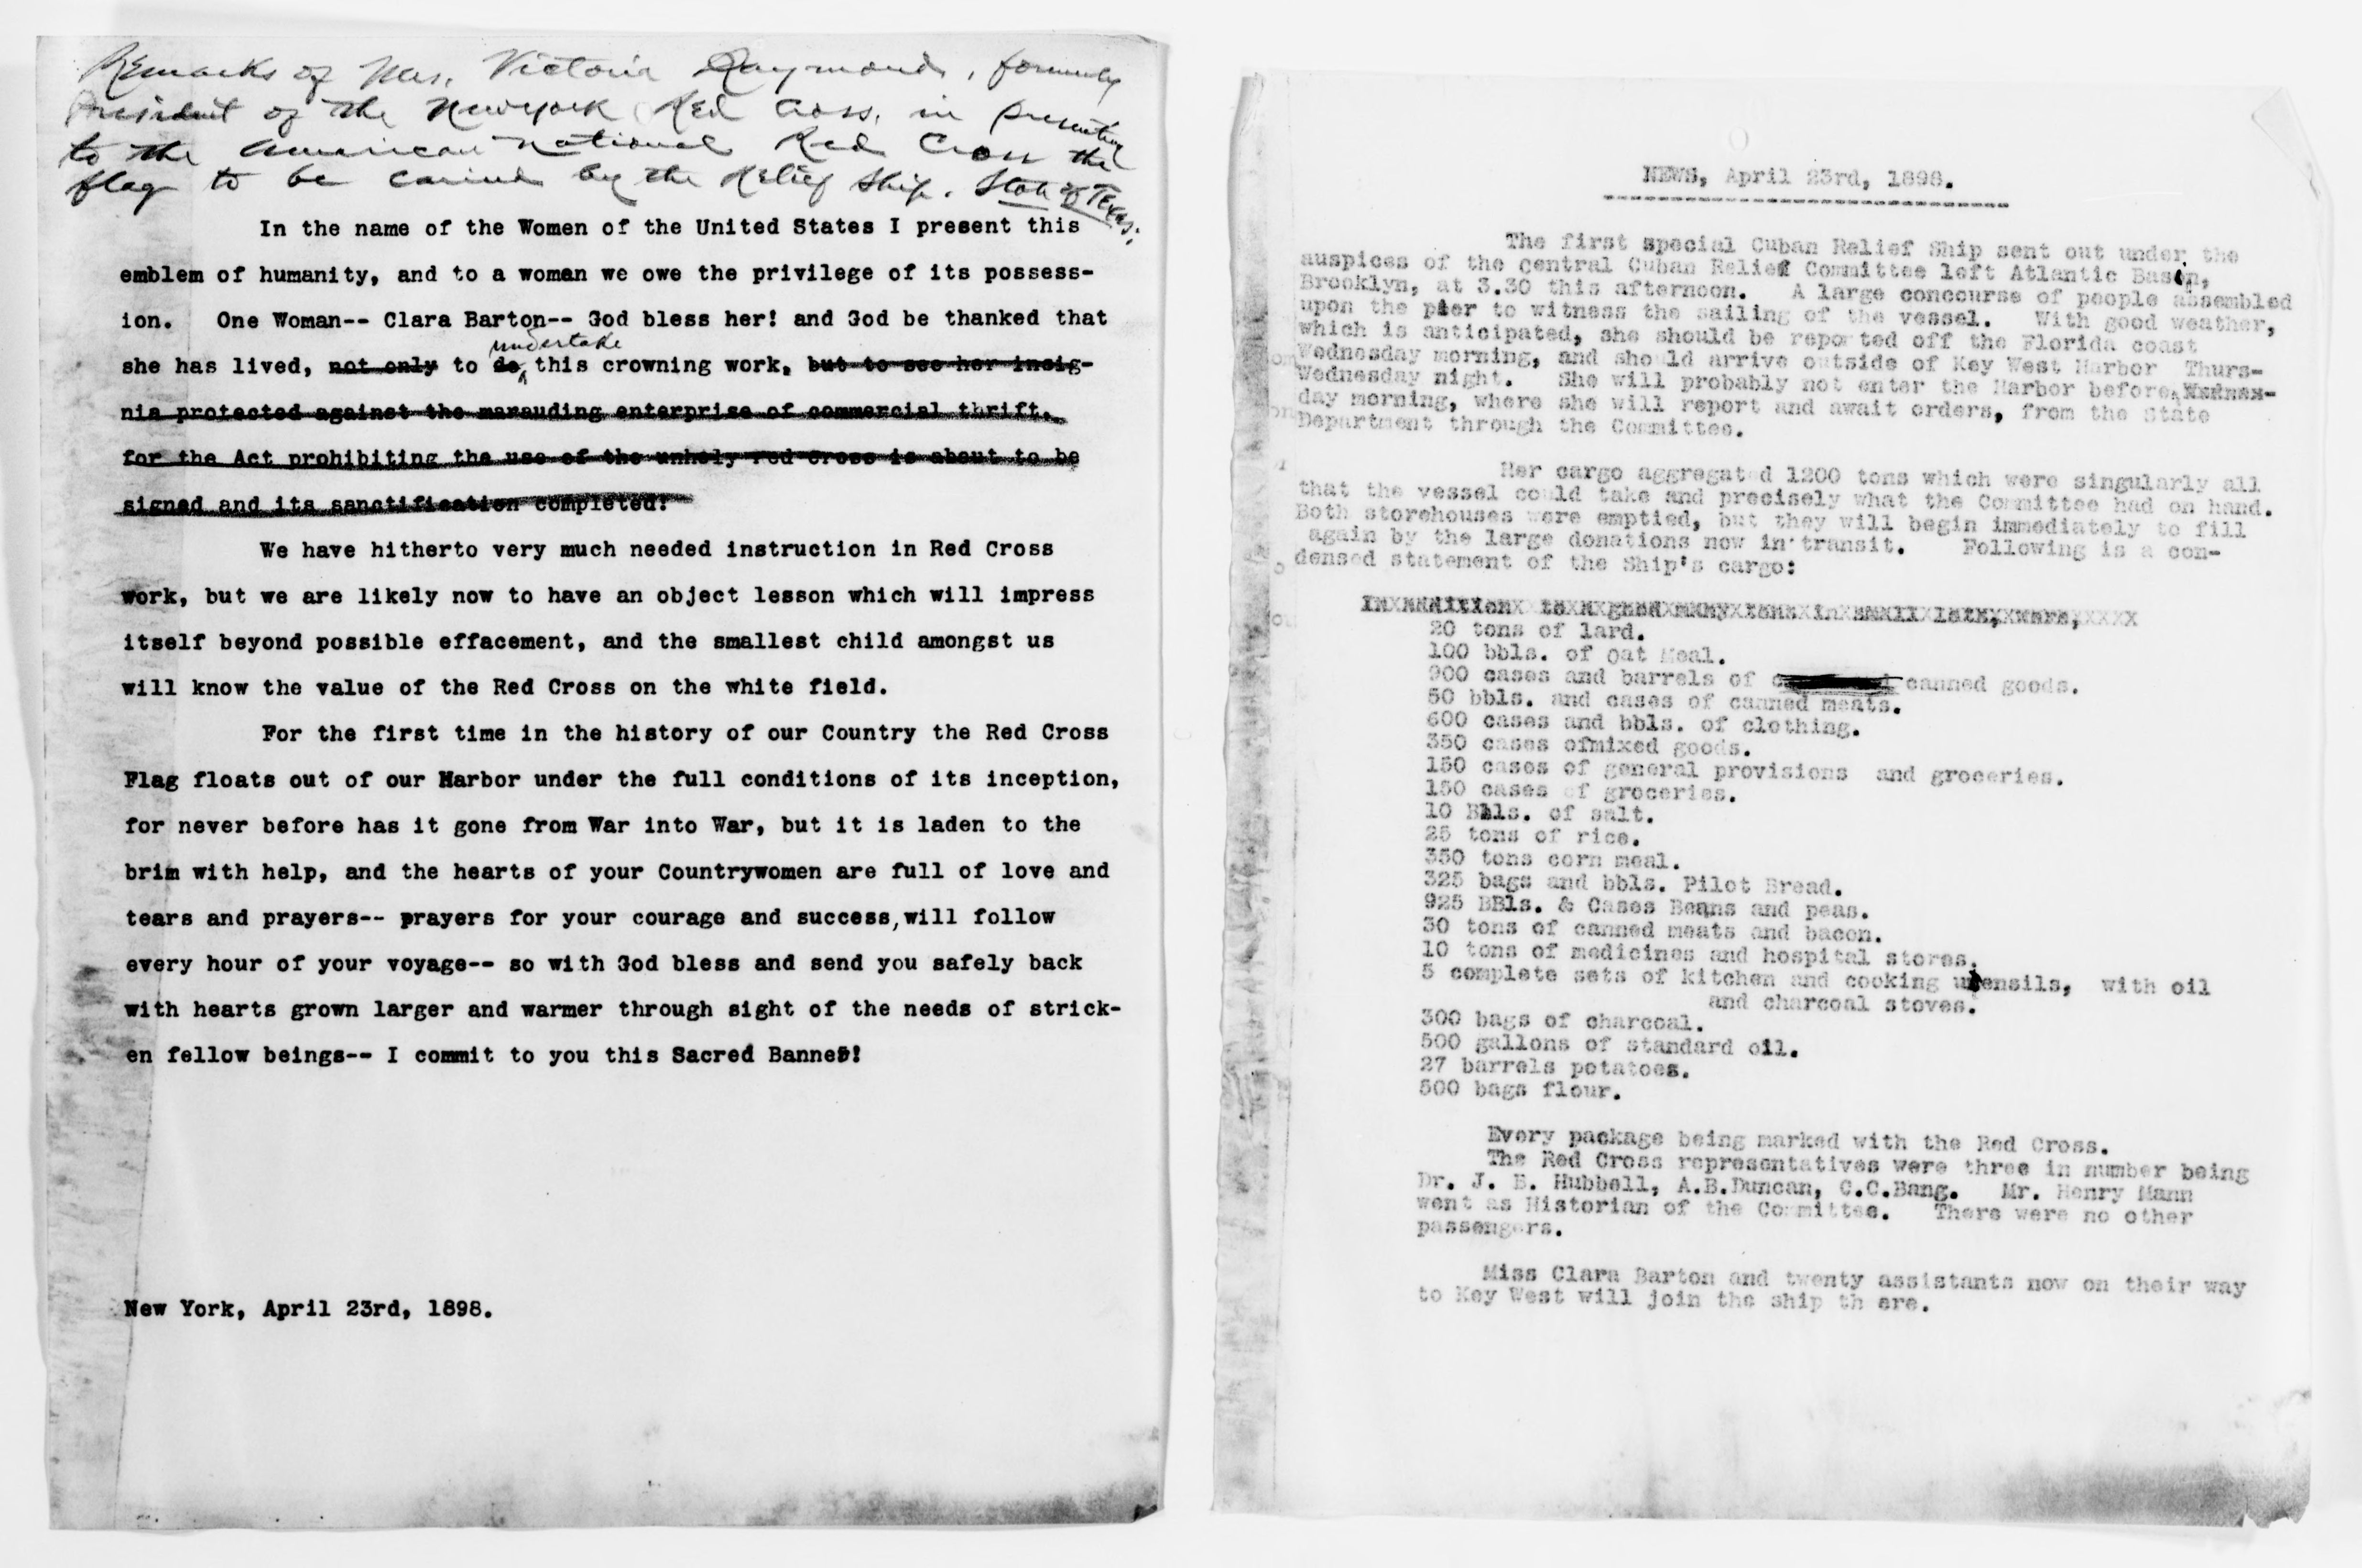 Remarks of Mrs. Victoria Raymond, formerly
President of the New York Red Cross, in presenting
to the American National Red Cross the
flag to be carried by the Relief Ship. State of Texas.
In the name of the Women of the United States I present this
emblem of humanity, and to a woman we owe the privilege of its possess-
ion. One Woman-- Clara Barton-- God bless her! and God be thanked that
undertake
she has lived, not only to do this crowning work, but to see her insig-
nia protected against the marauding enterprise of commercial thrift,
for the Act prohibiting the use of the unholy red Cross is about to be
signed and its sanctification completed!
We have hitherto very much needed instruction in Red Cross
work, but we are likely now to have an object lesson which will impress
itself beyond possible effacement, and the smallest child amongst us
will know the value of the Red Cross on the white field.
For the first time in the history of our Country the Red Cross
Flag floats out of our Harbor under the full conditions of its inception,
for never before has it gone from War into War, but it is laden to the
brim with help, and the hearts of your Countrywomen are full of love and
tears and prayers-- prayers for your courage and success, will follow
every hour of your voyage-- so with God bless and send you safely back
with hearts grown larger and warmer through sight of the needs of strick-
en fellow beings-- I commit to you this Sacred Banner!
New York, April 23rd, 1898.
NEWS, April 23rd, 1898.
The first special Cuban Relief Ship sent out under the
auspices of the Central Cuban Relief Committee left Atlantic Basin,
Brooklyn, at 3.30 this afternoon. A large concourse of people assembled
upon the pier to witness the sailing of the vessel. With good weather,
which is anticipated, she should be reported off the Florida coast
Wednesday morning, and should arrive outside of Key West Harbor Thurs-
Wednesday night. She will probably not enter the Harbor before Wednes-
day morning, where she will report and await orders, from the State
Department through the Committee.
Her cargo aggregated 1200 tons which were singularly all
that the vessel could take and precisely what the Committee had on hand.
Both storehouses were emptied, but they will begin immediately to fill
again by the large donations now in transit. Following is a con-
densed statement of the Ship's cargo:
20 tons of lard.
100 bbls. of Oat Meal.
900 cases and barrels of canned goods.
50 bbls. and cases of canned meats.
600 cases and bbls. of clothing.
350 cases ofmixed goods.
150 cases of general provisions and groceries.
150 cases of groceries.
10 Bbls. of salt.
25 tons of rice.
350 tons corn meal.
325 bags and bbls. Pilot Bread.
925 BBls. & Cases Beans and peas.
30 tons of canned meats and bacon.
10 tons of medicines and hospital stores.
5 complete sets of kitchen and cooking utensils, with oil
and charcoal stoves.
300 bags of charcoal.
500 gallons of standard oil.
27 barrels potatoes.
500 bags flour.
Every package being marked with the Red Cross.
The Red Cross representatives were three in number being
Dr. J. B. Hubbell, A.B.Duncan, C.C.Bang. Mr. Henry Mann
went as Historian of the Committee. There were no other
passengers.
Miss Clara Barton and twenty assistants now on their way
to Key West will join the ship th ere.